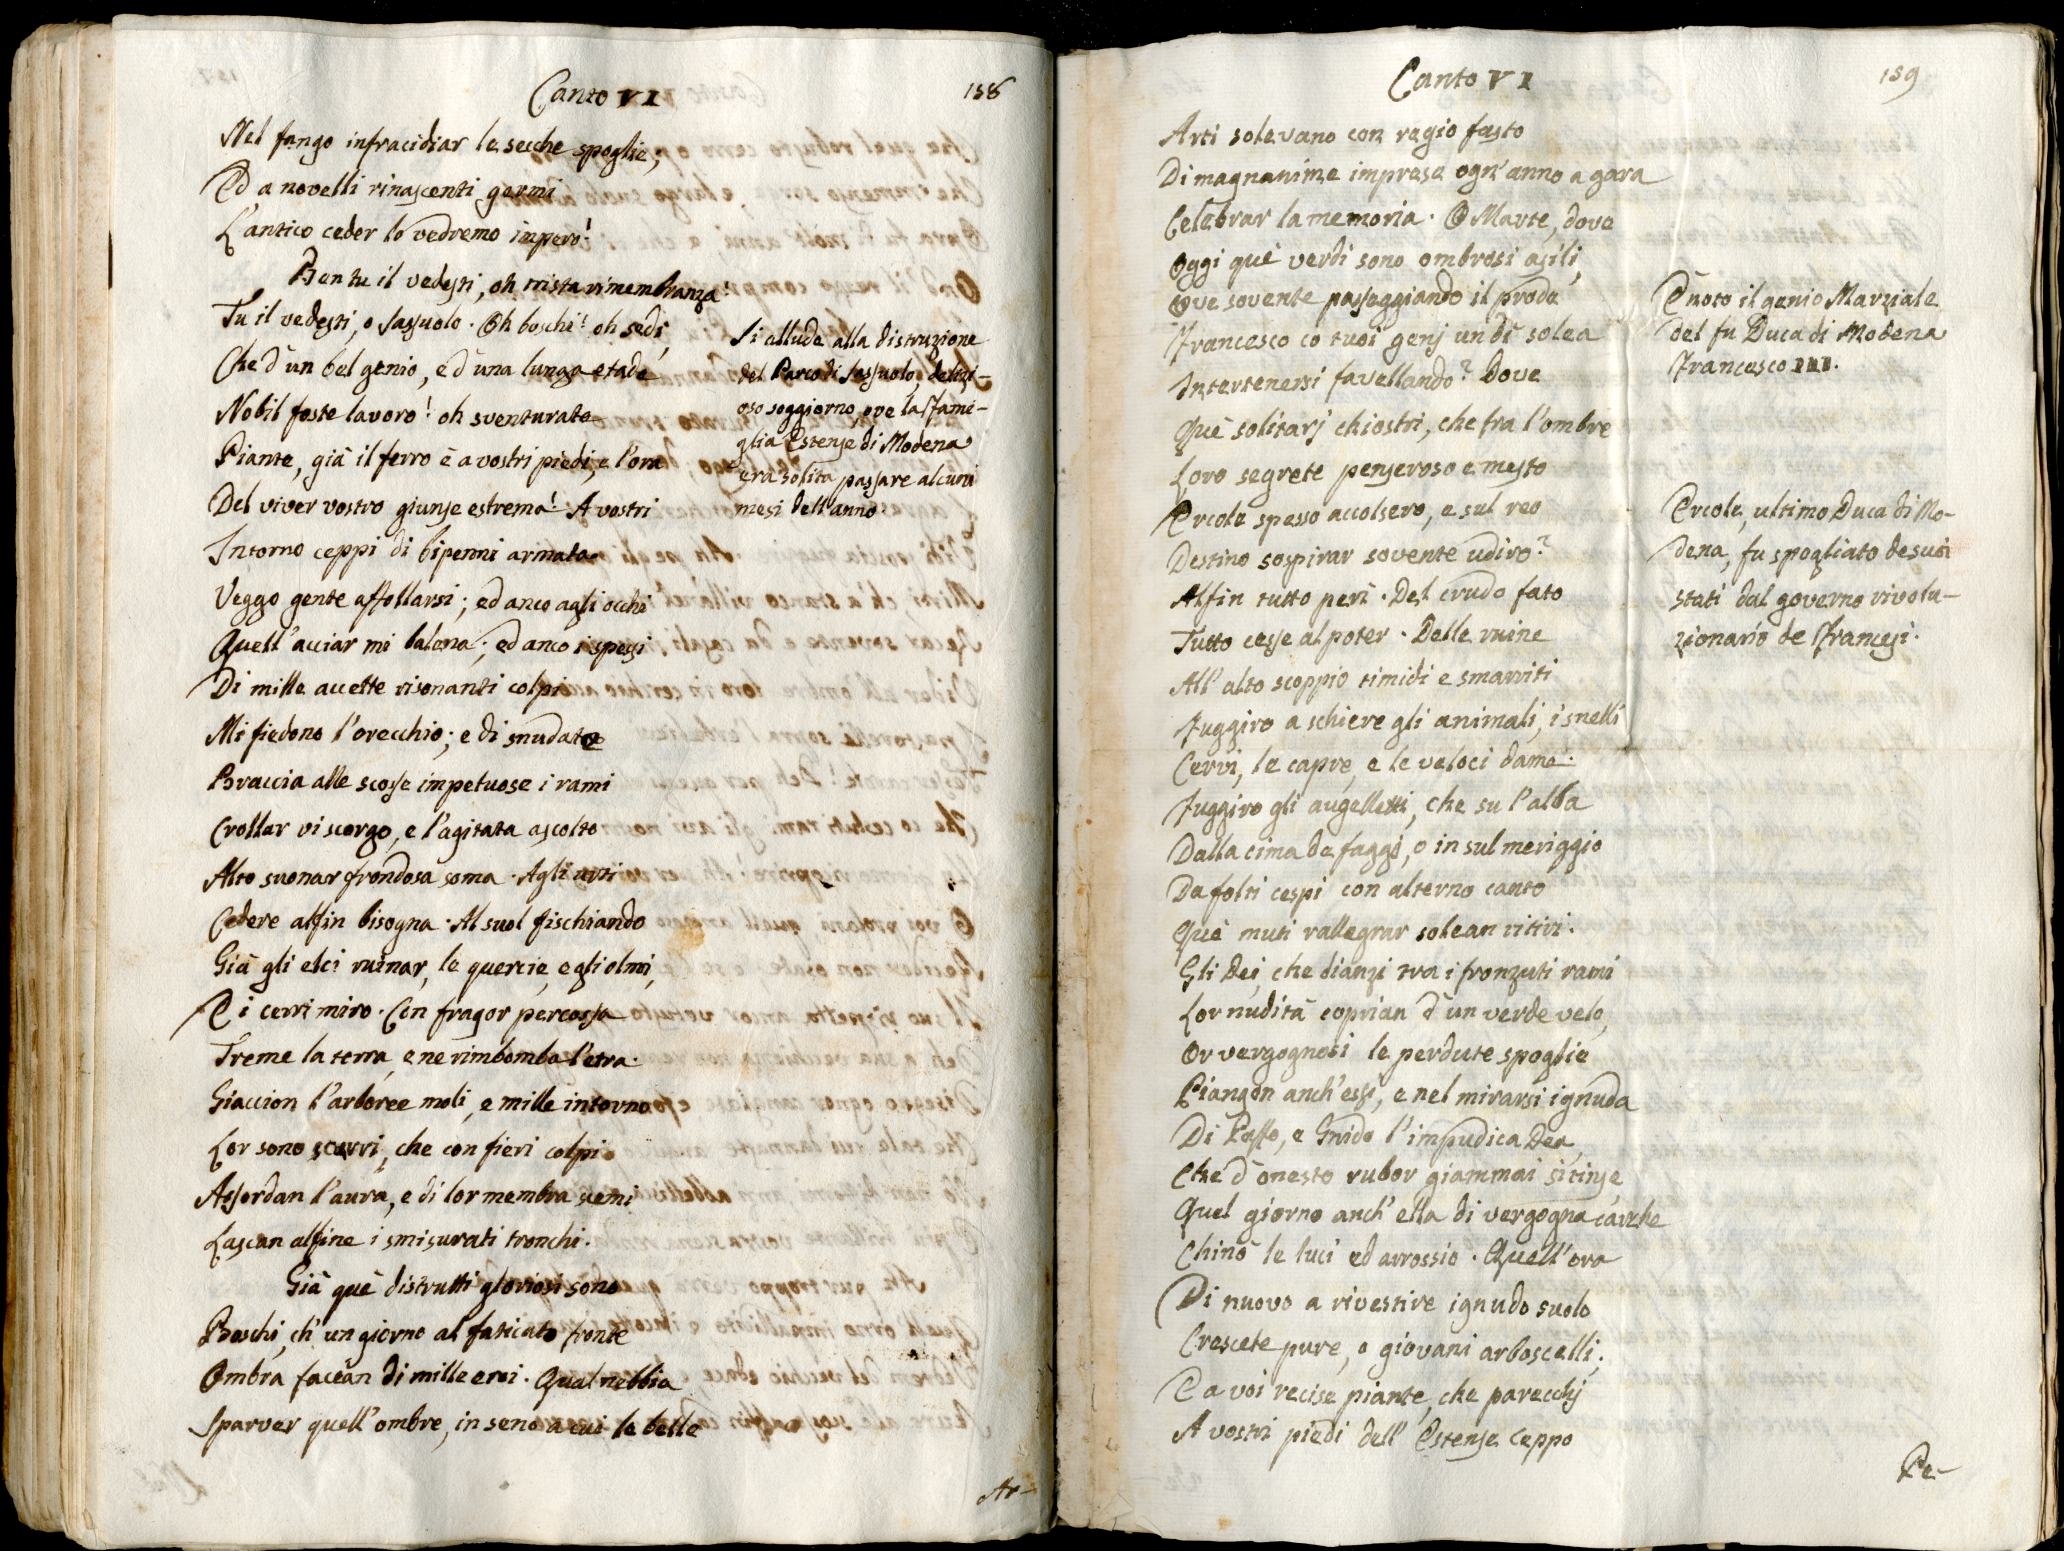 Canto VI
158
Nel fango infracidiar le secche spoglie,
Ed a novelli rinascenti germi
L'antico ceder lo vedremo inpero!
Ben tu il vedesti, oh trista rimembranza!
Tu il vedesti, o Sassuolo. Oh boschi! oh sedi,
Che d'un bel genio, e d'una lunga etade
Nobil foste lavoro! oh sventurate
Piante, già il ferro è a vostri piedi, e l'ora
Del viver vostro giunse estrema! A vostri
Intorno ceppi di bipenni armata
Veggo gente affollarsi; ed anco agli occhi
Quell'acciar mi balena; ed anco i spessi
Di mille accette risonanti colpi
Mi fiedono l'orecchio; e di snudate
Braccia alle scosse impetuose i rami
Crollar vi scorgo, e l'agitata ascolto
Alto suonar frondosa soma. Agli urti
Cedere alfin bisogna. Al suol fischiando
Già gli elci ruinar, le quercie, e gli olmi,
E i cerri miro. Con fragor percossa
Treme la terra, e ne rimbomba l'etra.
Giaccion l'arboree moli, e mille intorno
Lor sono scurri, che con fieri colpi
Assordan l'aura, e di lor membra scemi
Lascan alfine i smisurati tronchi.
Già què distrutti gloriosi sono
Boschi, ch'un giorno al faticato fronte
Ombra facean di mille eroi. Qual nebbia
Sparver quell'ombre, in seno a cui le belle
Ar-
Si allude alla distruzione
del Parco di Sassuolo, delizi-
oso soggiorno, ove la fami-
glia Estense di Modena
era solita passare alcuni
mesi dell'anno.
Canto VI
159
Arti solevano con regio fasto
Di magnanime imprese ogn'anno a gara
Celebrar la memoria. O Marte, dove
Oggi què verdi sono ombrosi asili,
Ove sovente passeggiando il prode
Francesco co tuoi genj un dì solea
Intertenersi favellando? Dove
Què solitarj chiostri, che fra l'ombre
Loro segrete penseroso e mesto
Ercole spesso accolsero, e sul reo
Destino sospirar sovente udiro?
Alfin tutto perì. Del crudo fato
Tutto cesse al poter. Delle ruine
All'alto scoppio timidi e smarriti
Fuggiro a schiere gli animali, i snelli
Cervi, le capre, e le veloci dame.
Fuggiro gli augelletti, che su l'alba
Dalla cima de faggi, o in sul meriggio
Da folti cespi con alterno canto
Què muti rallegrar solean ritiri.
Gli Dei, che dianzi tra i fronzuti rami
Lor nudità coprian d'un verde velo,
Or vergognosi le perdute spoglie
Piangon anch'essi, e nel mirarsi ignuda
Di Paffo, e Gnido l'impudica Dea,
Che d'onesto rubor giammai si tinse
Quel giorno anch'ella di vergogna carche
Chinò le luci ed arrossio. Quell'ora
Di nuovo a rivestire ignudo suolo
Crescete pure, o giovani arboscelli;
E a voi recise piante, che parecchj
A vostri piedi dell'Estense ceppo
Pe-
È noto il genio Marziale
del fu Duca di Modena
Francesco III.
Ercole, ultimo Duca di Mo-
dena, fu spogliato de suoi
stati dal governo rivolu-
zionario de Francesi.